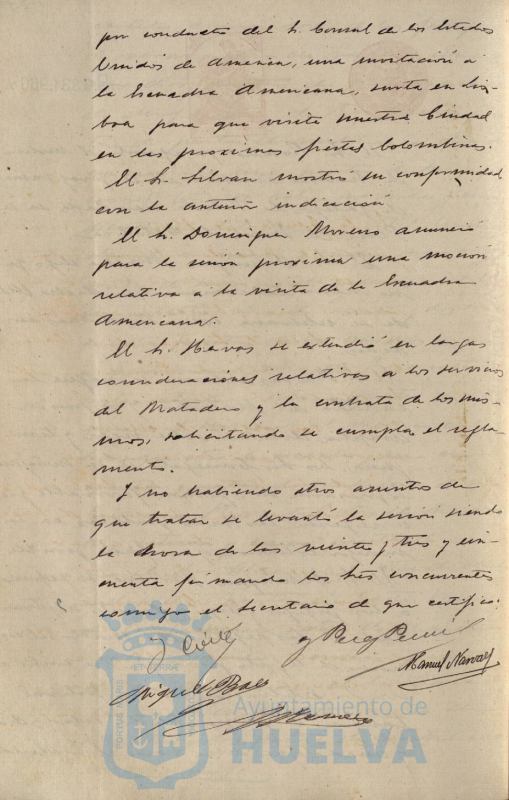 por conducto del Sr. Consul de los Estados
Unidos de America, una invitación á
la Escuadra Americana, surta en Lis-
boa para que visite nuestra Ciudad
en las proximas fiestas Colombinas.
El Sr. Silvan mostró su conformidad
con la anterior indicación
El Sr. Dominguez Moreno anunció
para la sesión proxima una moción
relativa á la visita de la Escuadra
Americana.
El Sr. se extendió en largas
consideraciones relativas a los servicios
del Matadero y la contrata de los mis-
mos, solicitando se cumpla el regla-
mento.
Y no habiendo otros asuntos de
que tratar se levantó la sesión siendo
la hora de las veinte y tres y cin-
cuenta firmando los Sres concurrentes
conmigo el Secretario de que certifico.
Manuel Narvaez
Miguel
Ayuntamiento de
HUELVA